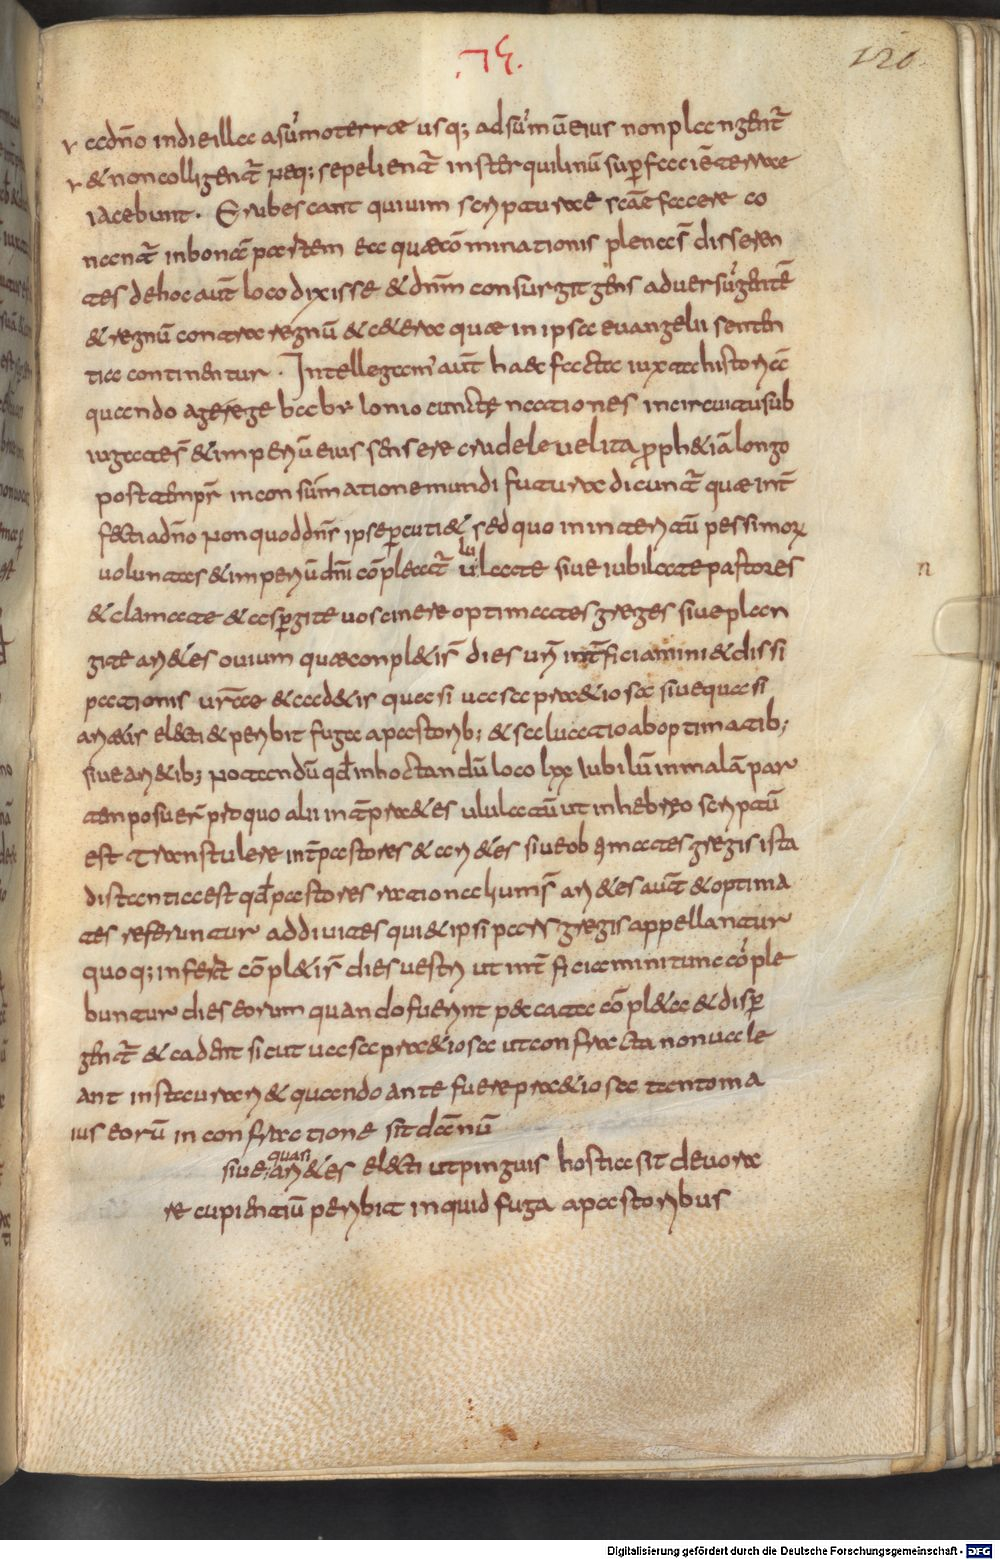 120.
a dn̄o in die illa a sūmo terrae usq; ad sūmū eius non plangent̄
& non colligent̄ neq; sepelient̄ in sterquilinū sup faciē terrae
iacebunt. Erubescant qui uim scripturae s̄cāe facere co
nant̄ in bonā partem ea quae cōminationis plena s̄t disseren
tes de hoc aut̄ loco dixisse & dn̄m consurgit gens aduersū gentē
& regnū contra regnū & c&era quae in ipsa euangelii senten
tia continentur. Intellegam' aut̄ haec facta iuxta historiā
quando a rege babylonio cunctę nationes in circuitu sub
iugatae s̄ & imperiū eius sensere crudele uel ita proph&iā longo
post tempr̄ in consūmatione mundi futura dicunt̄ quae int̄
fecti a dn̄o non quod dn̄s ipse percuti& sed quo in interitū pessimor
uoluntas & imperiū dn̄i cōpleat̄ ululate siue iubilate pastores
& clamate & aspgite uos cinere optimates greges siue plan
gite ari&es ouium quae conpl&i s̄ dies ur̄i int̄ficiamini & dissi
pationis ur̄ae & cad&is quasi uasa pr&iosa siue quasi
ari&is electi & peribit fuga a pastorib; & saluatio ab optimatib;
siue ari&ib; notandū qd̄ in hoc tandū loco lxx iubilū in malā par
tem posuer̄ pro quo alii int̄pr&es ululatū ut in hebreo scriptū
est transtulere int̄ pastores & ari&es siue optimates gregis ista
distantia est qd̄ pastores ratione hums̄ ari&es aut̄ & optima
tes referuntur ad diuites qui & ipsi pars gregis appellantur
quo q; infert cōpl&i s̄ dies uestri ut int̄ficiamini tunc cōple
buntur dies eorum quando fuerint peccata cōpl&a & disp
gent̄ & cadent sicut uasa pr&iosa ut confracta non uale
ant instaurari & quando ante fuere pr&iosa tanto ma
ius eorū in confractione sit damnū
quasi
siue ari&es electi ut pinguis hostia sit deuora
re cupientiū peribit inquid fuga a pastoribus
n
Digitalisierung gefördert durch die Deutsche Forschungsgemeinschaft - DFG